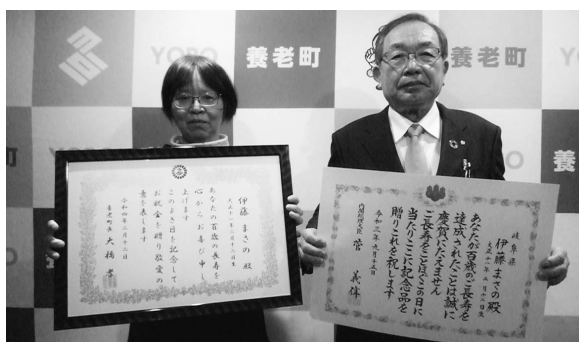 YORO
養老町
YORO
伊藤 まさの 殿
大正十一年二月十二日生
あなたの百歳の長寿を
心からお喜び申し
上げます
このよき日を記念して
お祝金を贈り敬愛の
意を表します
令和四年二月十二日
養老町長 大橋 孝
岐阜県
伊藤 まさの 殿
あなたが百歳のご長寿を
達成されたことは誠に
慶賀にたえません
ご長寿をことほぐこの日に
当たりここに記念品を
贈りこれを祝します
令和三年九月十五日
内閣総理大臣 菅 義偉